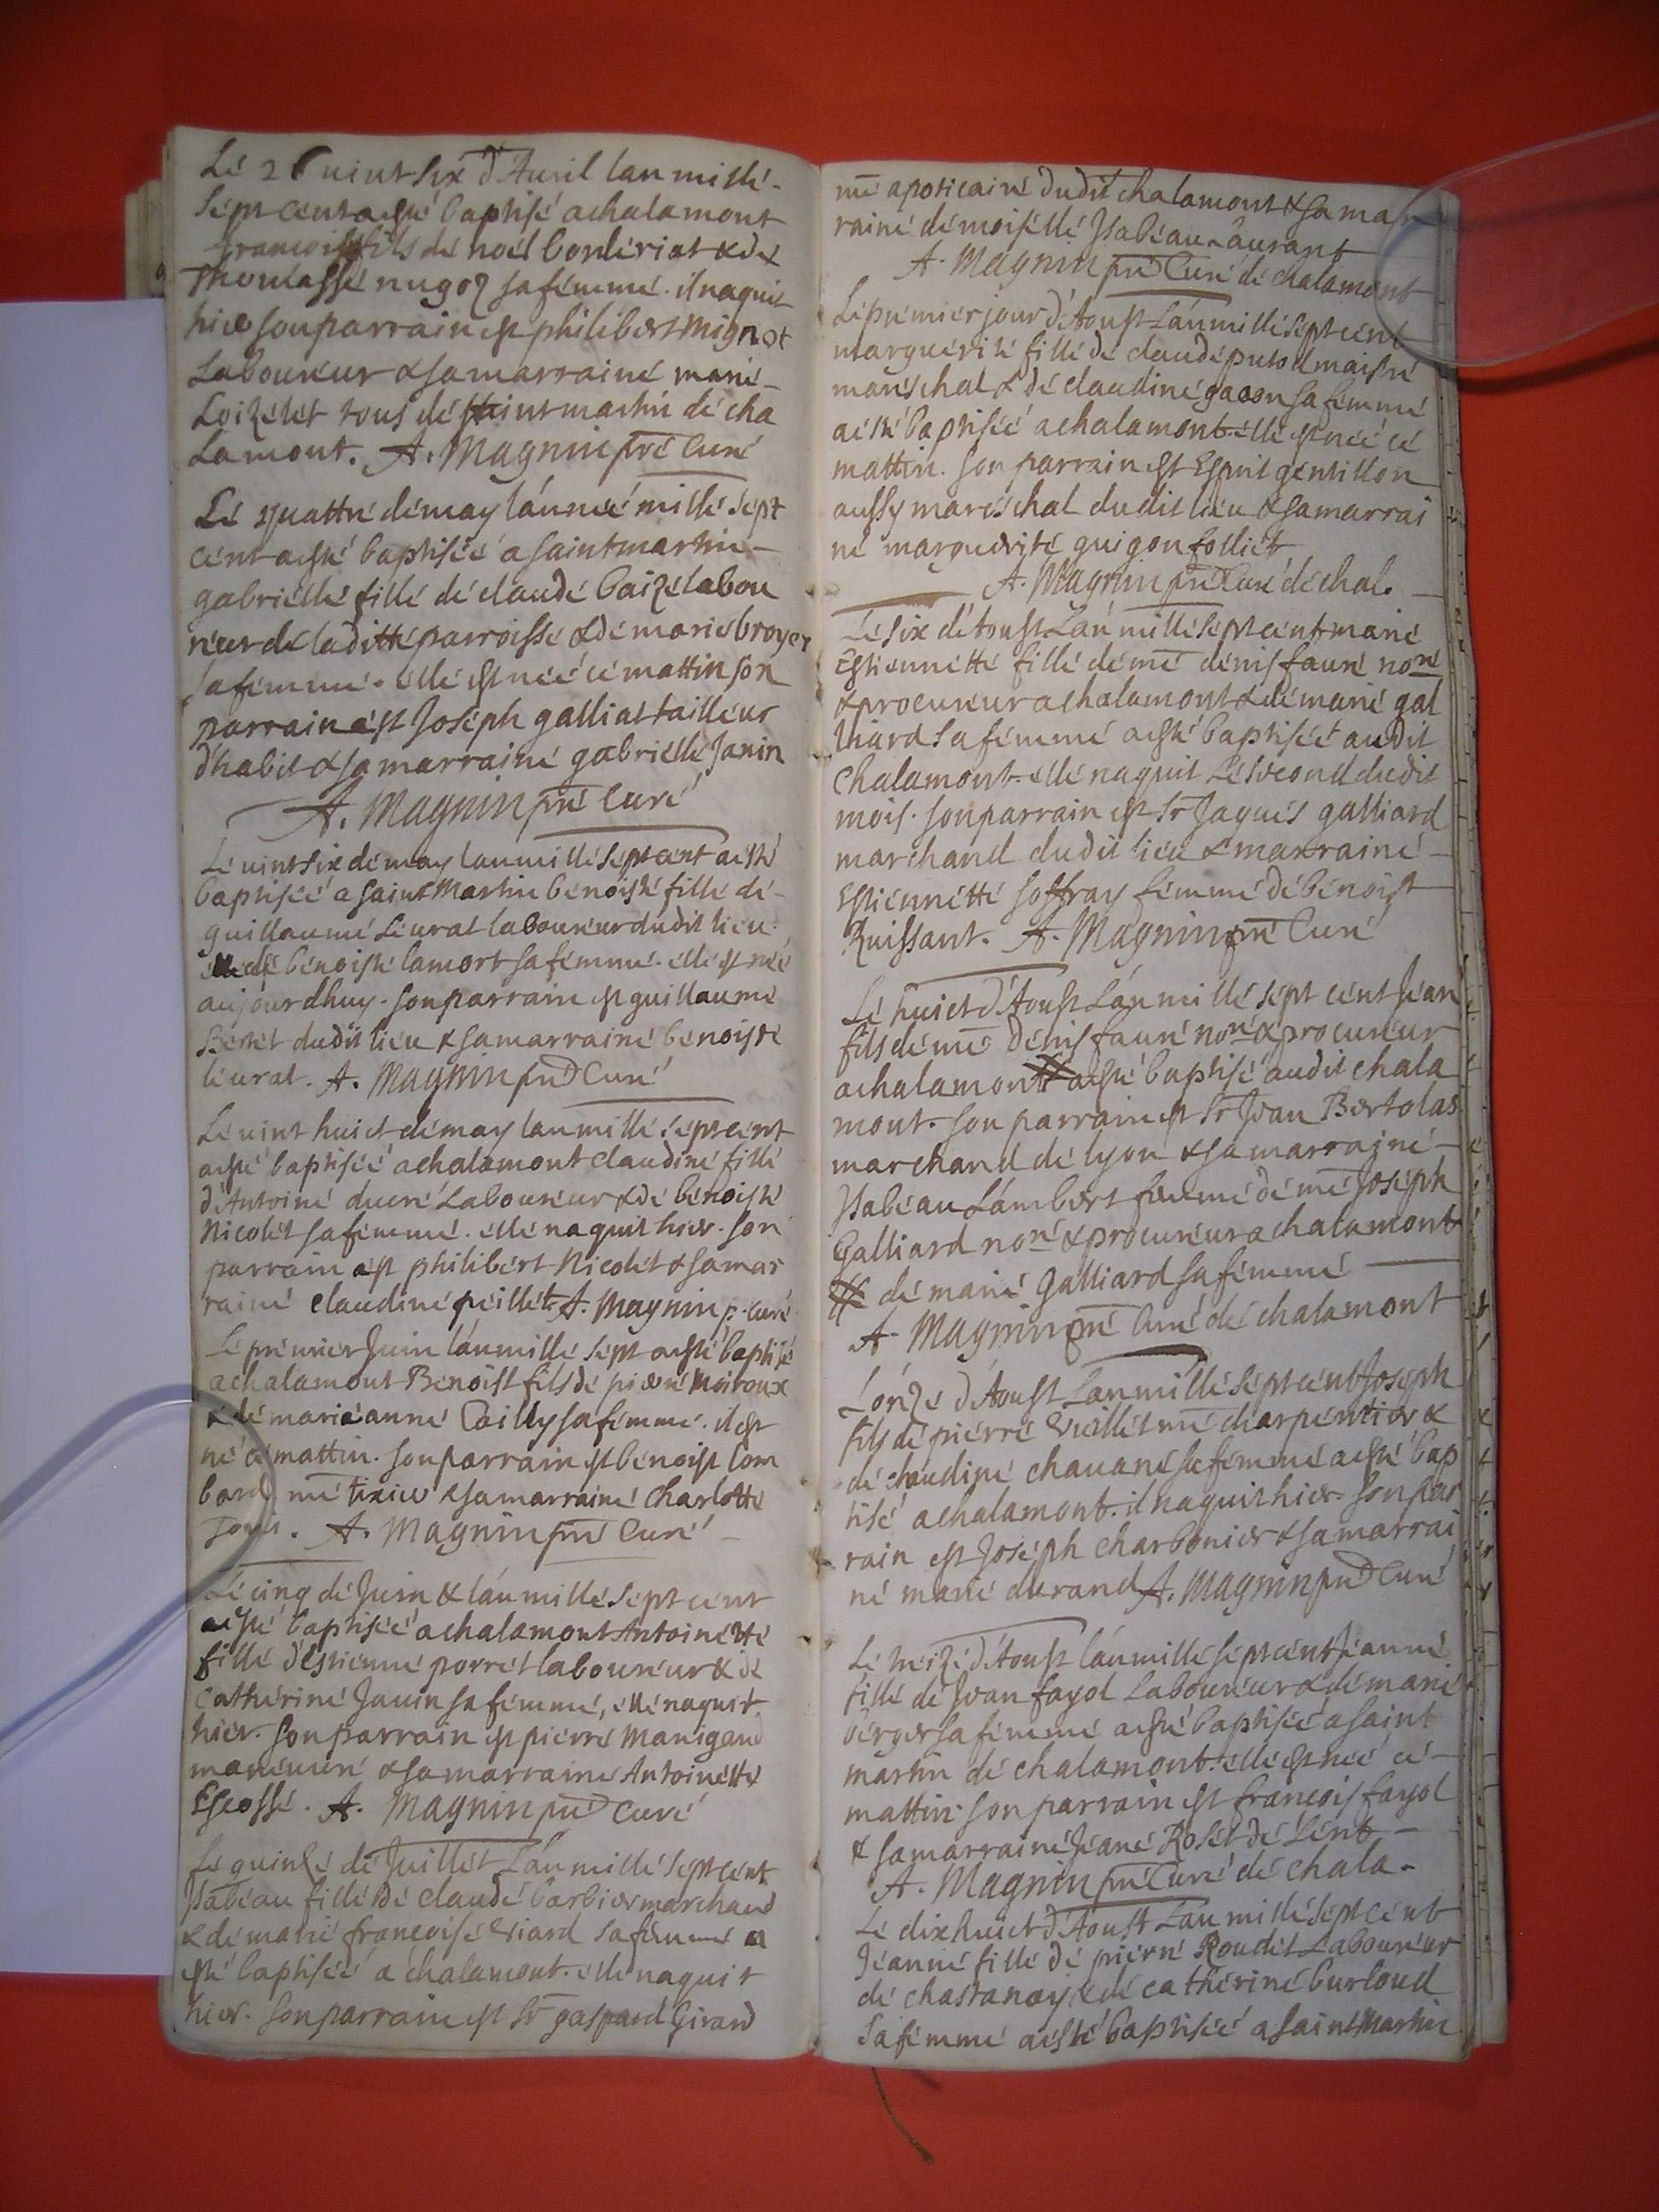 Lé 26 uint six d'Auril lan millé
sept cent a esté baptisé a chalamont
francois fils dé noél borderiat & dé
Thomassé nugoz sa fémmé. il naquit
hier son parrain est philibert mignot
Laboureur & sa marrainé marié
Loizelét tous dé saint martin dé cha
lamont. A. Magnin pré Curé
Lé quattré dé may l'année millé sépt
cént a esté baptiséé a saint martin
gabriéllé fillé dé claudé baizé labou
réur dé laditté parroissé & dé marié broyer
sa fémmé. éllé est néé cé mattin son
parrain ést Joséph galliat tailleur
d'habit & sa marrainé gabriéllé Janin
A. Magnin pré Curé
Lé uint six dé may lan millé sépt cént a esté
baptiséé a saint Martin bénoisté fillé dé
guillaumé Liurat laboureur dudit lieu
& dé bénoisté lamort sa fémmé. éllé est néé
aujourdhuy. son parrain est guillaumé
dudit lieu & sa marrainé bénoisté
liurat. A. Magnin pré Curé
Lé uint huict dé may lan millé sépt cént
a esté baptiséé a chalamont claudiné fillé
d'Antoiné ducré Laboureur & dé bénoisté
Nicolét sa fémmé. éllé naquit hier. son
parrain ést philibért Nicolét & sa mar
rainé claudiné péillét A. Magnin p. Curé
Lé prémier Juin l'an millé sépt a esté baptisé
a chalamont Bénoist fils dé pierré Moiroux
& dé marié anné Cailly sa fémmé. il est
né cé mattin. son parrain est bénoist lom
bard mé tixier & sa marrainé Charlotté
A. Magnin pré Curé
Lé cinq dé Juin & l'an millé sépt cént
a esté baptiséé a chalamont Antoinétté
fillé d'éstienné porrét laboureur & dé
Cathériné Janin sa fémmé, éllé naquit
hier. son parrain est pierré Manigand
& sa marrainé Antoinétté
Escossé. A. Magnin pré Curé
Lé quinzé dé Juillét Lan millé sépt cént
Isabéau fillé dé claudé barbier marchand
& dé marié françoisé Viard sa fémmé a
esté baptiséé a chalamont. éllé naquit
hier. son parrain est Sr gaspard Girard
mé apoticairé dudit chalamont & sa mar
rainé démoiséllé Isabéau Laurant
A. Magnin pré Curé dé chalamont
Lé prémier jour d'Aoust L'an millé sépt cént
marguérité fillé dé claudé putod maistré
maréschal & dé claudiné gacon sa fémmé
a esté baptiséé a chalamont. éllé est néé cé
mattin. son parrain est Esprit géntillon
aussy maréschal dudit lieu & sa marrai
né marguérité guigon folliét
A. Magnin pré Curé dé chal.
Lé six d'Aoust L'an millé sépt cént marié
Estiennétté fillé dé mé dénis fauré noré
& procureur a chalamont & dé marié gal
liard sa fémmé a esté baptiséé audit
Chalamont. éllé naquit Lé sécond dudit
mois. son parrain est Sr Jaqués galliard
marchand dudit lieu & marrainé
Estiennétté soffray fémmé dé bénoist
Ruissant. A. Magnin pré Curé
Lé huict d'Aoust L'an millé sépt cént Jéan
fils dé mé Dénis fauré noré & procureur
a chalamont # a esté baptisé audit chala
mont. son parrain est Sr Jean Bertolas
marchand dé lyon & sa marrainé
Isabéau Lambért fémmé dé mé Joséph
Galliard noré & procureur a chalamont
# dé marié Galliard sa fémmé
A. Magnin pré Curé dé chalamont
L'onzé d'Aoust L'an millé sépt cént Joséph
fils dé piérré Vuillét mé charpéntier &
dé claudiné chauané sa fémmé a esté bap
tisé a chalamont. il naquit hier. son par
rain est Joséph charbonier & sa marrai
né marié durand A. Magnin pré Curé
Lé tréizé d'Aoust l'an millé sépt cént Jéanné
fillé dé Jean fayol Laboureur & dé marié
bérger sa fémmé a esté baptiséé a saint
martin dé chalamont. éllé est néé cé
mattin. son parrain est françois fayol
& sa marrainé Jéané Rosét dé Lént
A. Magnin pré Curé dé chala.
Lé dix huict d'Aoust L'an millé sépt cént
Jéanné fillé dé pierré Roudét Laboureur
dé chastanay & dé cathériné burloud
sa fémmé a esté baptiséé a saint Martin